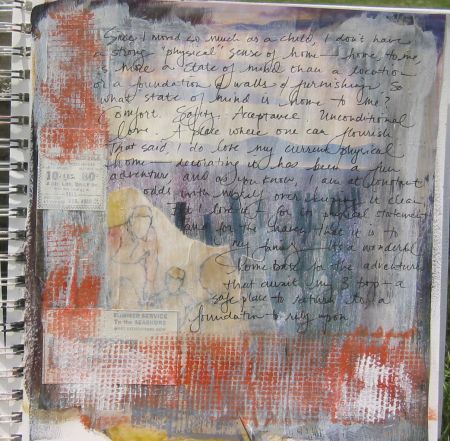 Since I moved so much as a child, I don't have
strong "physical" sense of home — home to me
is more a state of mind than a location
or a foundation & walls & furnishings. So
what state of mind is home to me?
Comfort. Safety. Acceptance. Unconditional
love. A place where one can flourish.
That said, I do love my current physical
home — decorating it has been a fun
adventure and as you know, I am at constant
odds with myself over keeping it clean
but I love it — for its physical statement
and for the shares that it is to
my family — it's a wonderful
home base for the adventures
that await my 3 boys & a
safe place to return to — a
foundation to rely upon.
10 LBS. 80
SUMMER SERVICE
To the SEASHORE